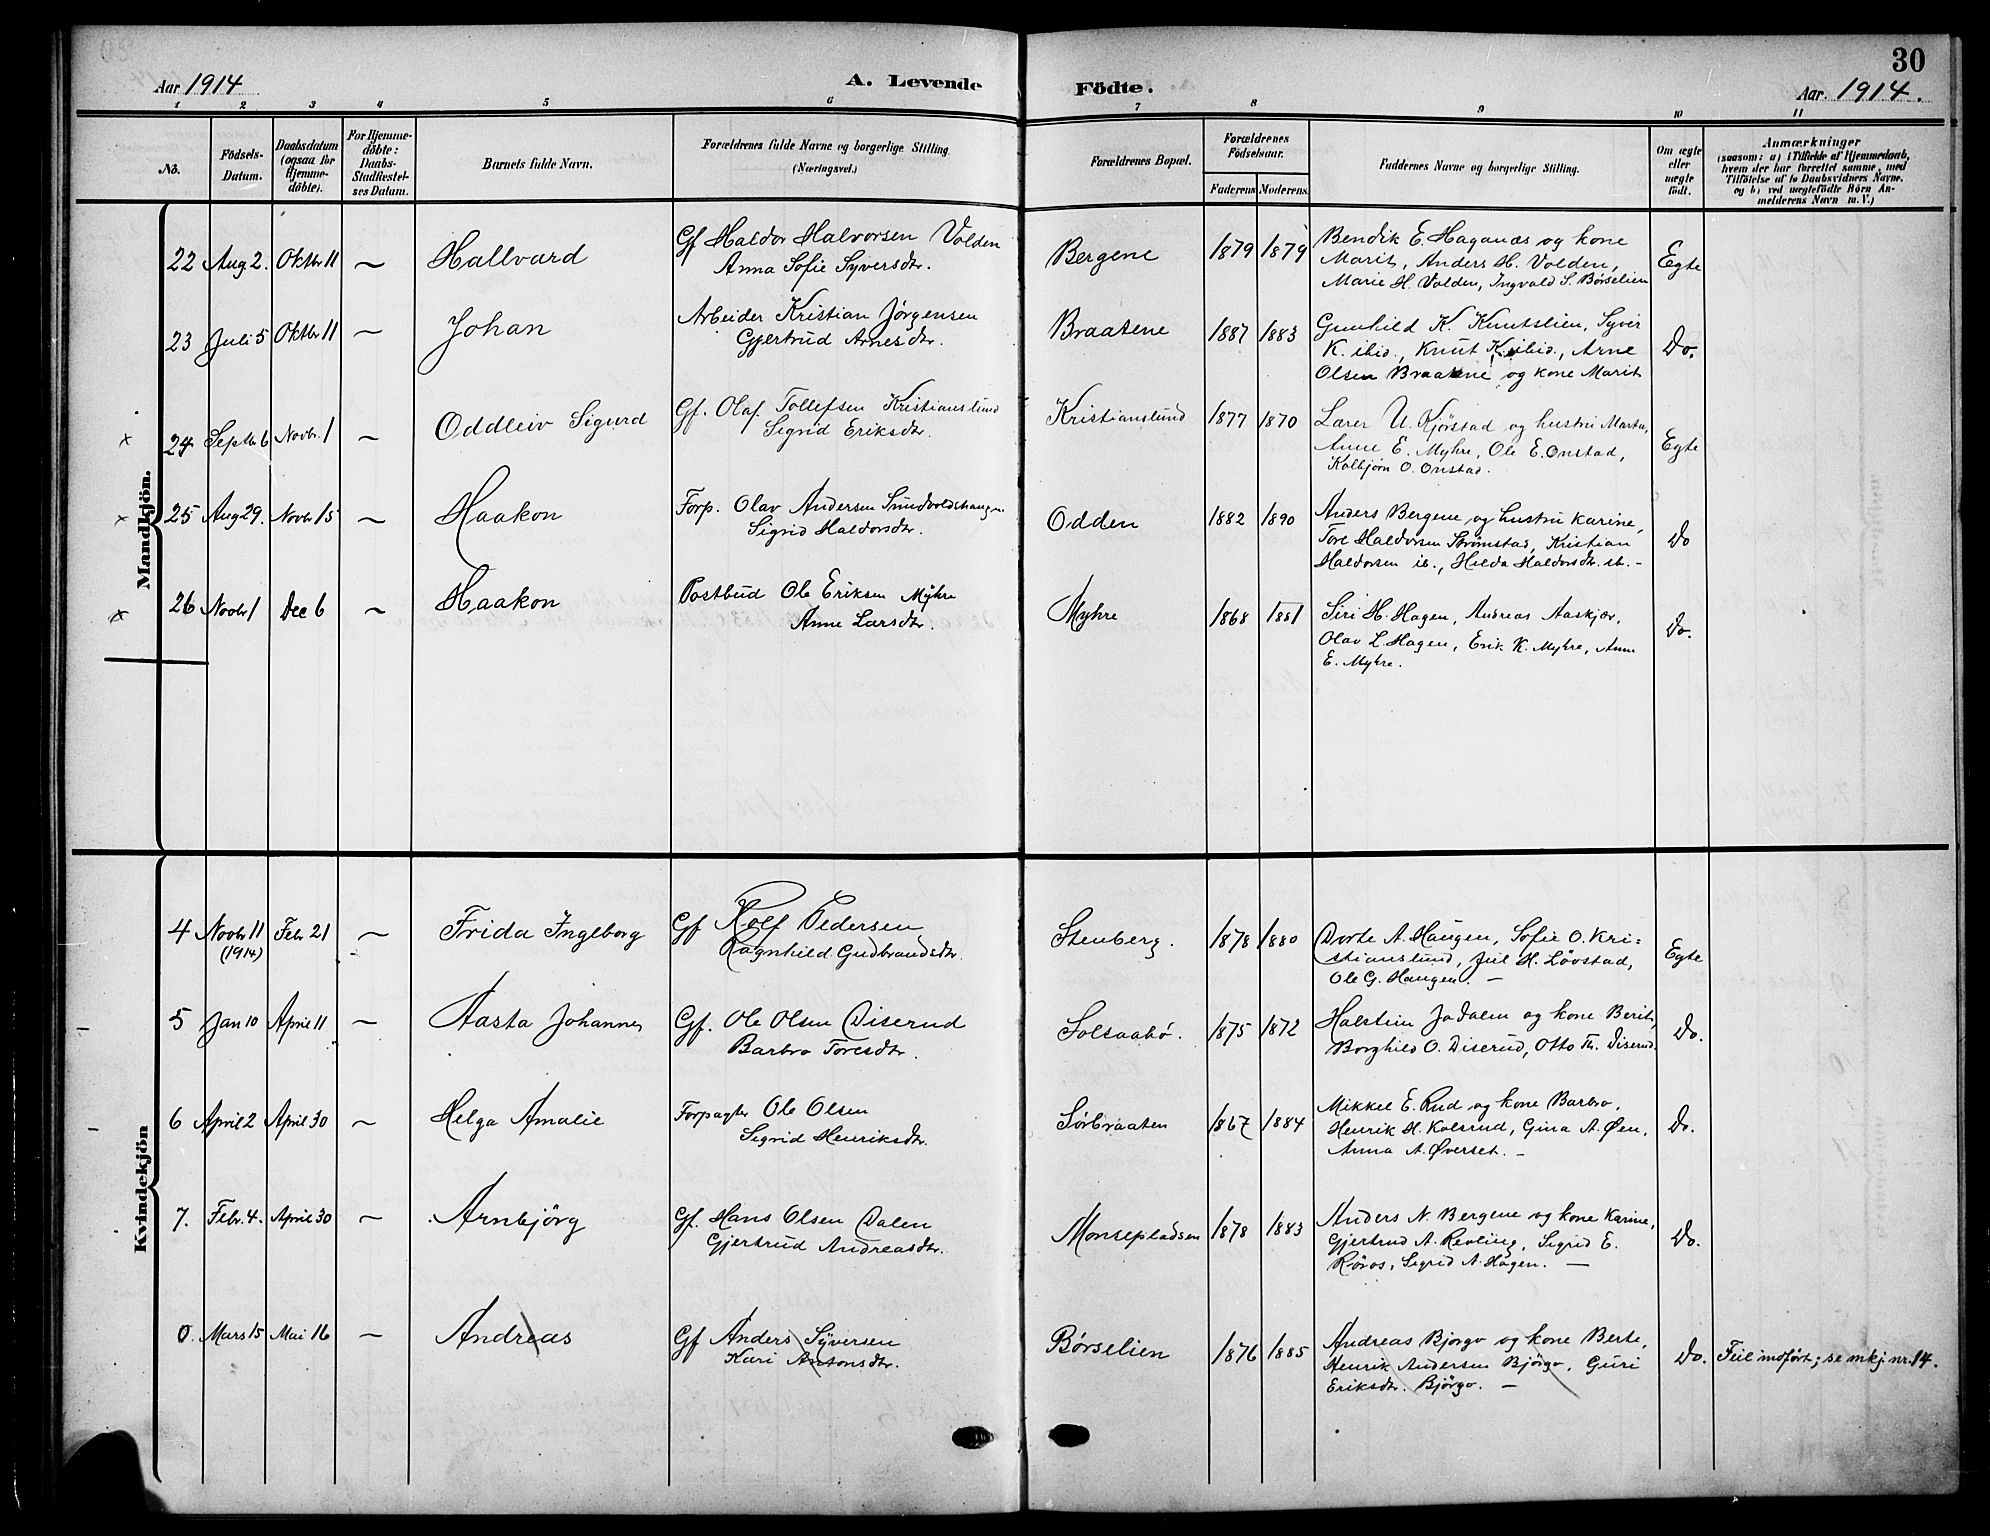 30
Aar 1914
A. Levende
Födte.
Aar. 1914.
1 2 3 4 5 6 7 8 9 10 11
No.
Födsels-
Datum.
Daabsdatum
(ogsaa for
Hjemme-
döbte).
For Hjemme-
döbte:
Daabs-
Stadfæstel-
ses Datum.
Barnets fulde Navn.
Forældrenes fulde Navne og borgerlige Stilling
(Næringsvei.)
Forældrenes Bopæl.
Forældrenes
Födselsaar.
Faderens Moderens
Faddernes Navne og borgerlige Stilling.
Om ægte
eller
uægte
födt.
Anmærkninger
(saasom: a) i Tilfælde af Hjemmedaab,
hvem der har forrettet samme, med
Tilföielse af to Daabsvidners Navne,
og b) ved uægtefödte Börn An-
melderens Navn m. V.)
Mandkjön.
22 Aug 2. Oktbr 11 ~ Hallvard
Gf Haldor Halvorsen Volden
Anna Sofie Syversdtr.
Bergene 1879 1879
Bendik E. Haganæs og kone
Marit, Anders H. Volden,
Marie H. Volden, Ingvald S. Børselien
Egte
23 Juli 5 Oktbr 11 ~ Johan
Arbeider Kristian Jørgensen
Gjertrud Arnesdtr.
Braatene 1887 1883
Gunhild K. Knutslien, Syver
K. ibid., Knut K. ibid., Arne
Olsen Braatene og kone Marit
Do.
x 24 Septbr 6 Novbr. 1 ~ Oddleiv Sigurd
Gf. Olaf Tollefsen Kristianslund
Sigrid Eriksdtr.
Kristianslund 1877 1870
Lærer U. Kjørstad og hustru Marta,
Anne E. Myhre, Ole E. Onstad,
Kolbjørn O. Onstad.
Egte
x 25 Aug 29. Novbr 15 ~ Haakon
Forp. Olav Andersen Sundvoldshaugen
Sigrid Haldorsdtr.
Odden 1882 1890
Anders Bergene og hustru Karine,
Tore Haldorsen Strømstad, Kristian
Haldorsen ib., Hilda Haldorsdtr. ib. -
Do
x 26 Novbr 1 Dec 6 ~ Haakon
Postbud Ole Eriksen Myhre
Anne Larsdtr.
Myhre 1868 1881
Siri H. Hagen, Andreas Aaskjær,
Olav L. Hagen, Erik K. Myhre, Anne
E. Myhre.
Do.
Kvindekjön
4 Novbr 11 Febr 21 ~ Frida Ingeborg
(1914)
Gf Rolf Pedersen
Ragnhild Gudbrandsdtr.
Stenberg. 1878 1880
Dorte A. Haugen, Sofie O. Kri=
stianslund, Juil H. Løvstad,
Ole G. Haugen. -
Egte
5 Jan 10 April 11 ~ Aasta Johanne
Gf. Ole Olsen Diserud
Barbro Toresdtr.
Solsaabø. 1875 1872
Halstein Jødalen og kone Berit,
Borghild O. Diserud, Otto Th. Diserud.
Do.
6 April 2 April 30 ~ Helga Amalie
Forpagter Ole Olsen
Sigrid Henriksdtr.
Sørbraaten 1867 1884
Mikkel E. Rud og kone Barbro,
Henrik H. Kolsrud, Gina A. Øen,
Anna A. Øverset. -
Do.
7. Febr. 4. April 30 ~ Arnbjörg
Gf. Hans Olsen Dalen
Gjertrud Andreasdtr.
Monsepladsen 1878 1883
Anders N. Bergene og kone Karine,
Gjertrud A. Revling, Sigrid E.
Røros, Sigrid A. Hagen. -
Do.
0. Mars 15 Mai 16 ~ Andreas
Gf Anders Syversen
Kari Antonsdtr.
Börselien 1876 1885
Andreas Bjørgo og kone Berte,
Henrik Andersen Bjørgo, Guri
Eriksdtr. Bjørgo. -
Do.
Feil indført; se mkj. nr. 14.